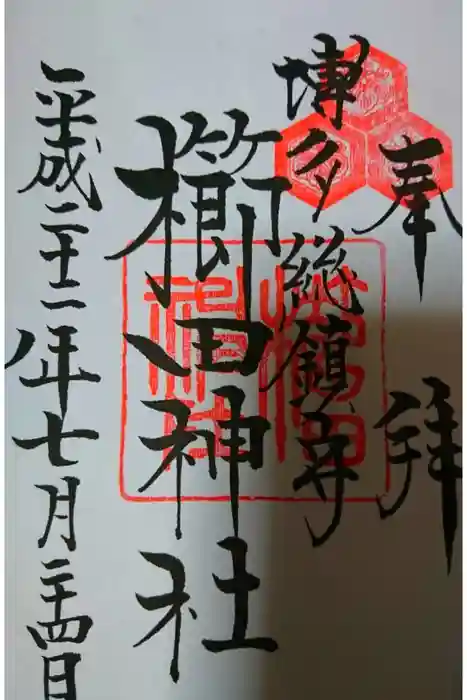 奉拝
博多総鎮守
櫛田神社
平成二十二年七月二十四日